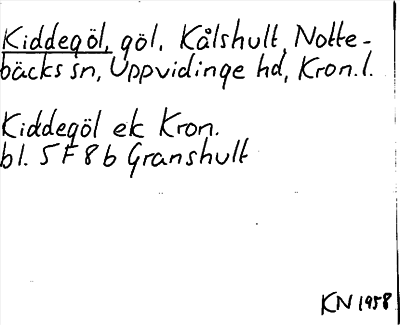 Kiddegöl, göl, Kålshult, Notte-
bäcks sn, Uppvidinge hd, Kron.l.
Kiddegöl ek Kron.
bl. 5 F 8 b Granshult
KN 1958